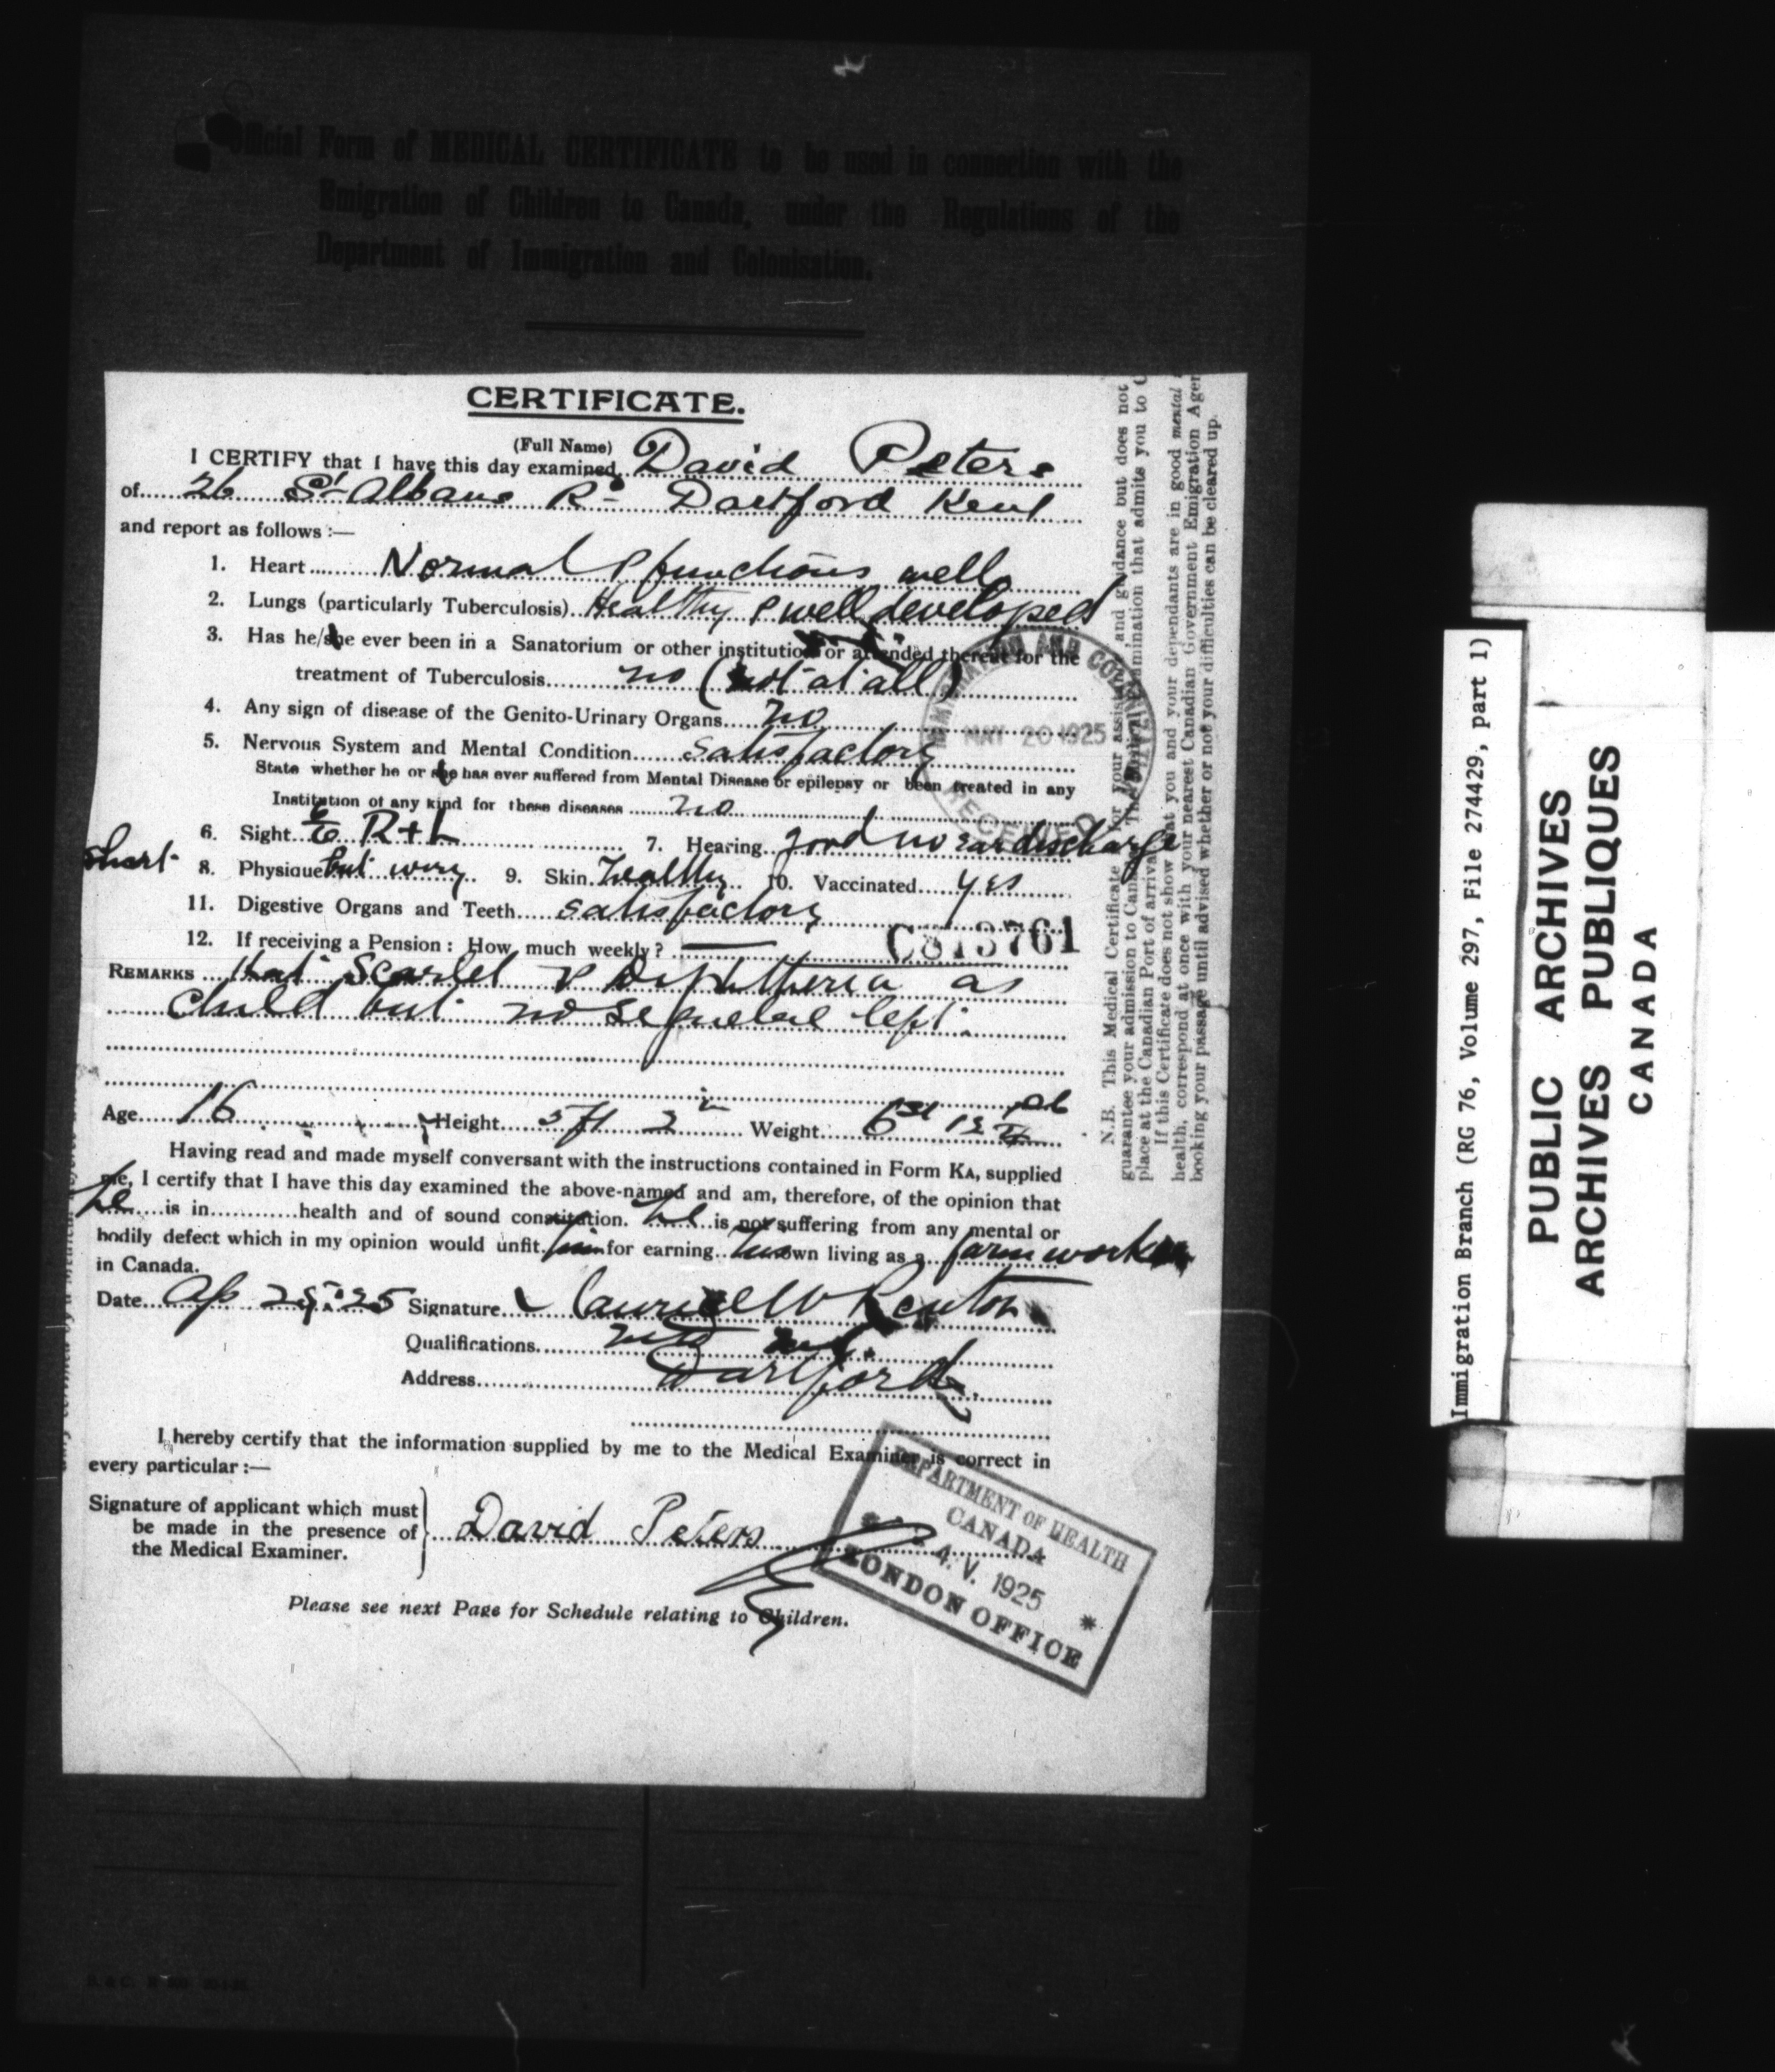 Official Form of MEDICAL CERTIFICATE to be used in connection with the
Emigration of Children to Canada, under the Regulations of the
Department of Immigration and Colonisation.
CERTIFICATE.
(Full Name)
I CERTIFY that I have this day examined David Peters
of 26 St Albans Rd Dartford Kent
and report as follows :—
1. Heart Normal & functions well
2. Lungs (particularly Tuberculosis) Healthy & well developed
3. Has he/she ever been in a Sanatorium or other institution or attended thereat for the
treatment of Tuberculosis no (not at all)
4. Any sign of disease of the Genito-Urinary Organs no
5. Nervous System and Mental Condition satisfactory
State whether he or she has ever suffered from Mental Disease or epilepsy or been treated in any
Institution of any kind for these diseases no
6. Sight 6/6 R + L 7. Hearing good no ear discharge
8. Physique short but wiry 9. Skin healthy 10. Vaccinated yes
11. Digestive Organs and Teeth satisfactory
12. If receiving a Pension: How much weekly? —
C813761
REMARKS Had Scarlet & Diphtheria as
child but no sequelae left.
Age 16 Height 5 ft 2 in Weight 6 st 12
Having read and made myself conversant with the instructions contained in Form KA, supplied
me, I certify that I have this day examined the above-named and am, therefore, of the opinion that
he is in health and of sound constitution. he is not suffering from any mental or
bodily defect which in my opinion would unfit him for earning his own living as a farm worker
in Canada.
Date Ap 25 25 Signature W Renton
Qualifications
Address Dartford
I hereby certify that the information supplied by me to the Medical Examiner is correct in
every particular :—
Signature of applicant which must
be made in the presence of
the Medical Examiner.
David Peters
Please see next Page for Schedule relating to Children.
IMMIGRATION AND COLONIZATION
MAY 20 1925
RECEIVED
DEPARTMENT OF HEALTH
CANADA
4. V. 1925
LONDON OFFICE
N.B. This Medical Certificate is for your assistance and guidance but does not
guarantee your admission to Canada. The examination that admits you to C
place at the Canadian Port of arrival.
If this Certificate does not show that you and your dependants are in good mental
health, correspond at once with your nearest Canadian Government Emigration Agen
booking your passage until advised whether or not your difficulties can be cleared up.
Immigration Branch (RG 76, Volume 297, File 274429, part 1)
PUBLIC ARCHIVES
ARCHIVES PUBLIQUES
CANADA